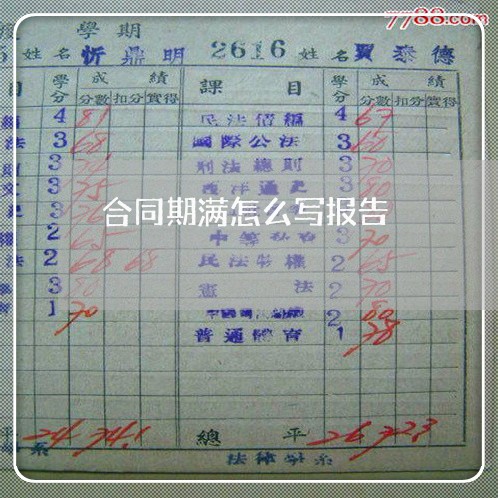 7788.com
學期
姓名 忻鼎明 2616 姓名 賈泰德
目 學分 成績 課目 學分 成績
分數 扣分 實得 分數 扣分 實得
4 81 民法債編 4 67
法 3 68 國際公法 3 60
3 刑法總則 3 70
文 3 75 西洋通史 3 80
3
合同期满怎么写报告
2 65 3 70
法 2 68 68 民法物權 2 65
3 80 憲法 2 70
1 70 2 80
普通體育 1 78
平 24 74.1 總平 26 72.3
系 法律學系